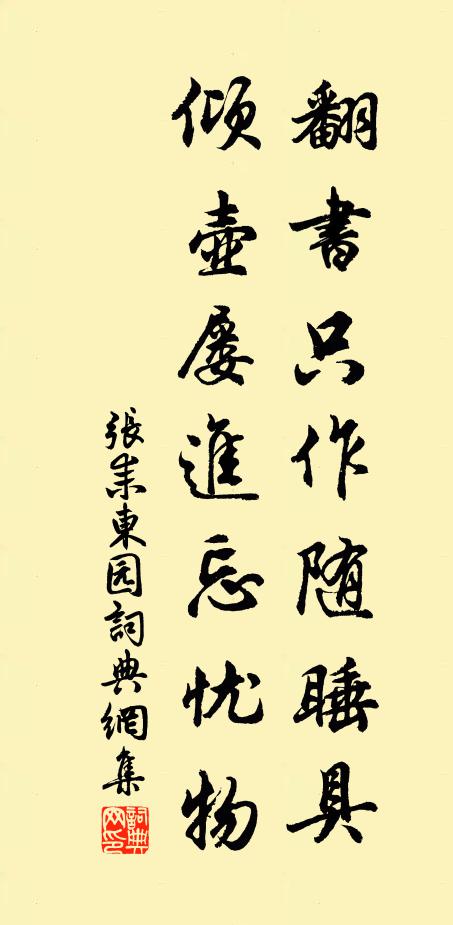 翻書只作随睡具
傾壺屡進忘忧物
張耒東园詞典網集
詞典网印